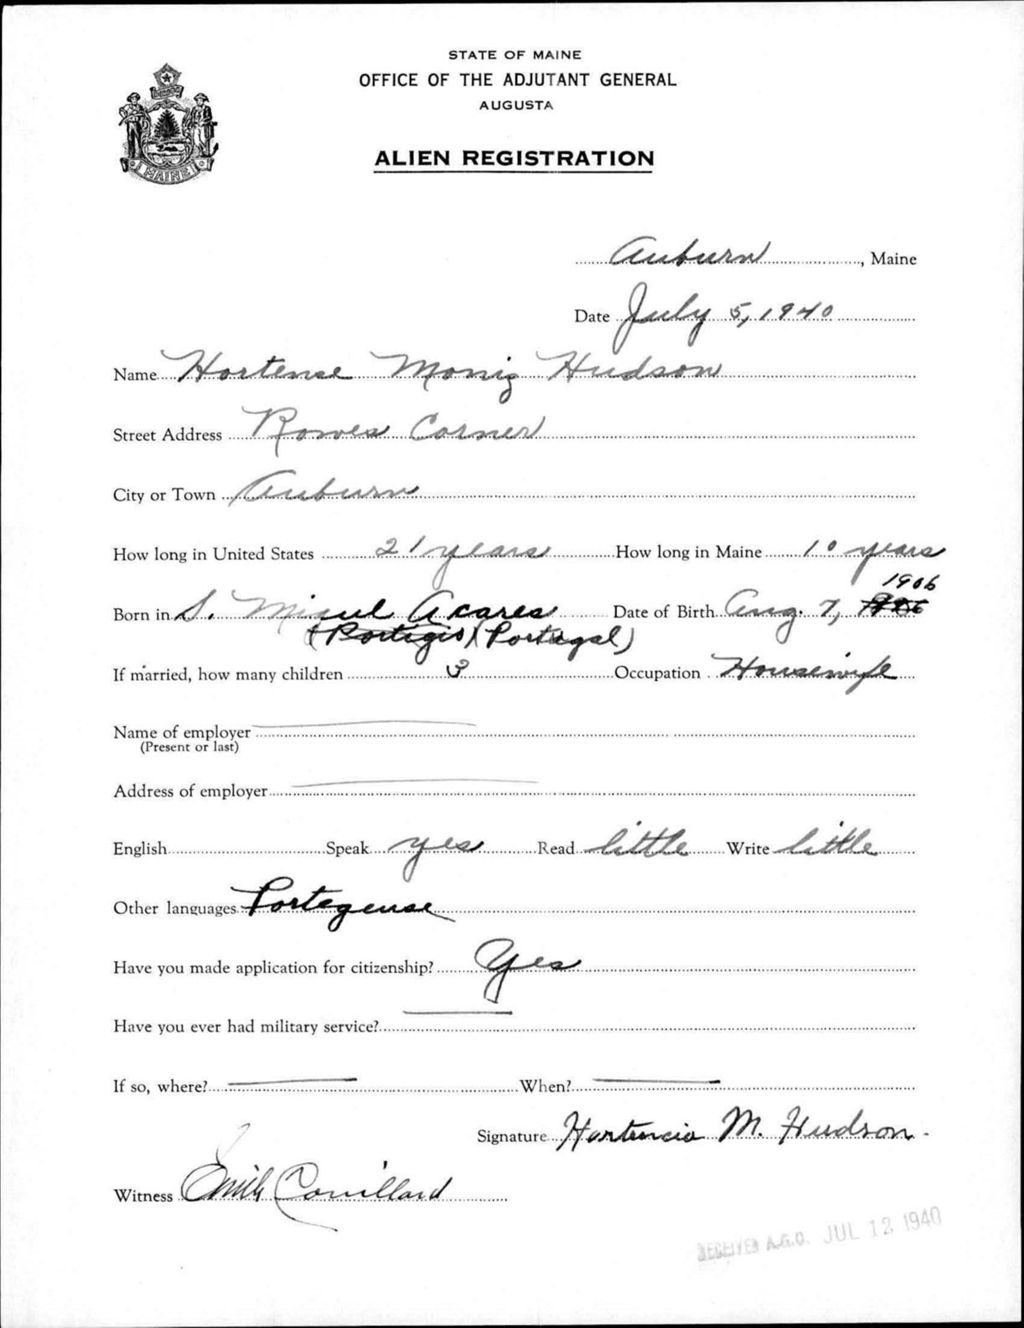 STATE OF MAINE
OFFICE OF THE ADJUTANT GENERAL
AUGUSTA
ALIEN REGISTRATION
MAINE
Auburn, Maine
Date July 5, 1940
Name Hortense Moniz Hudson
Street Address Rowes Corner
City or Town Auburn
How long in United States 21 years How long in Maine 10 years
1906
Born in S. Migul Acares Date of Birth Aug. 7,
(Portigis) (Portugal)
If married, how many children 3 Occupation Housewife
Name of employer
(Present or last)
Address of employer
English Speak yes Read little Write little
Other languages Portegeuse
Have you made application for citizenship? Yes
Have you ever had military service?
If so, where? When?
Signature Hortencia M. Hudson
Witness Couillard
RECEIVED A.G.O. JUL 12 1940